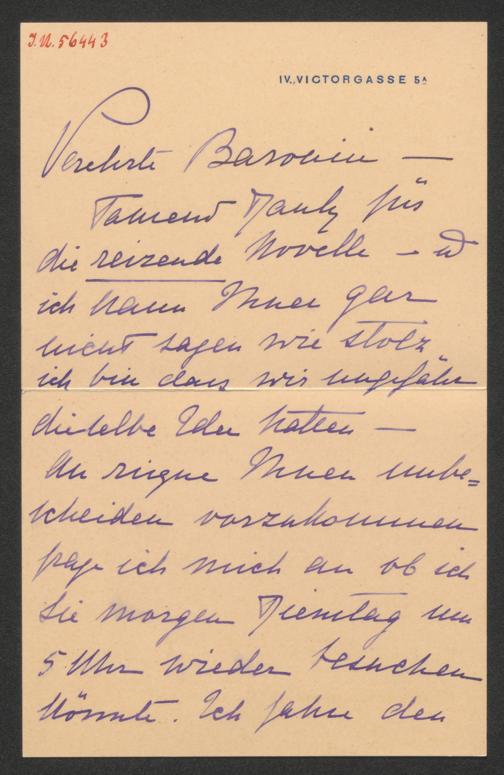 J.N. 56443
IV., VICTORGASSE 5A
Verehrte Baronin —
Tausend Dank für
die reizende Novelle – u
ich kann Ihnen gar
nicht sagen wie stolz
ich bin dass wir ungefähr
dieselbe Idee hatten —
Ihnen unbe=
scheiden vorzukommen
frage ich mich an ob ich
Sie morgen Dienstag um
5 Uhr wieder besuchen
könnte. Ich fahre den